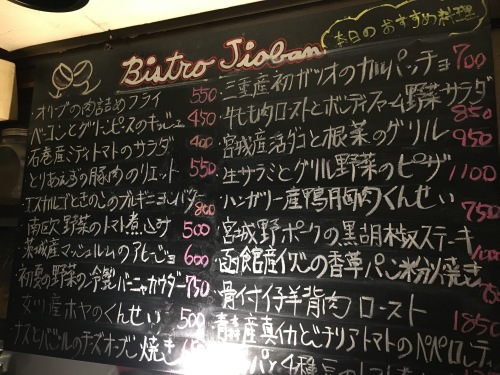 Bistro Jioban
本日のおすすめ料理
オリーブの肉詰めフライ 550
ベーコンとグリーンピースのキッシュ 450
石巻産ミディトマトのサラダ 400
とりあえずの豚肉のリエット 550
エスカルゴときのこのブルギニョンバター 800
南欧野菜のトマト煮込み 500
茨城産マッシュルームのアヒージョ 600
初夏の野菜の冷製バーニャカウダー 750
女川産ホヤのくんせい 500
ナスとバジルのチーズオーブン焼き
三重産初ガツオのカルパッチョ 700
牛もも肉ローストとボンディファーム野菜サラダ 850
宮城産活ダコと根菜のグリル 950
生サラミとグリル野菜のピザ 1100
ハンガリー産鴨胸肉くんせい 750
宮城野ポークの黒胡椒ステーキ
函館産イワシの香草パン粉焼き
骨付仔羊背肉ロースト
青森産真イカとドライトマトのペペロンチ
4種豆のトマト